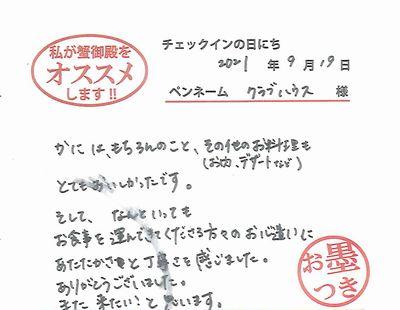 私が蟹御殿を
オススメ
します!!
チェックインの日にち
2021 年 9 月 19 日
ペンネーム クラブハウス 様
かには、もちろんのこと、その他のお料理も
(お肉、デザートなど)
とてもおいしかったです。
そして、なんといっても
お食事を運んできてくださる方々のお心遣いに
あたたかさと丁寧さを感じました。
ありがとうございました。
また来たい!と思います。
お墨
つき